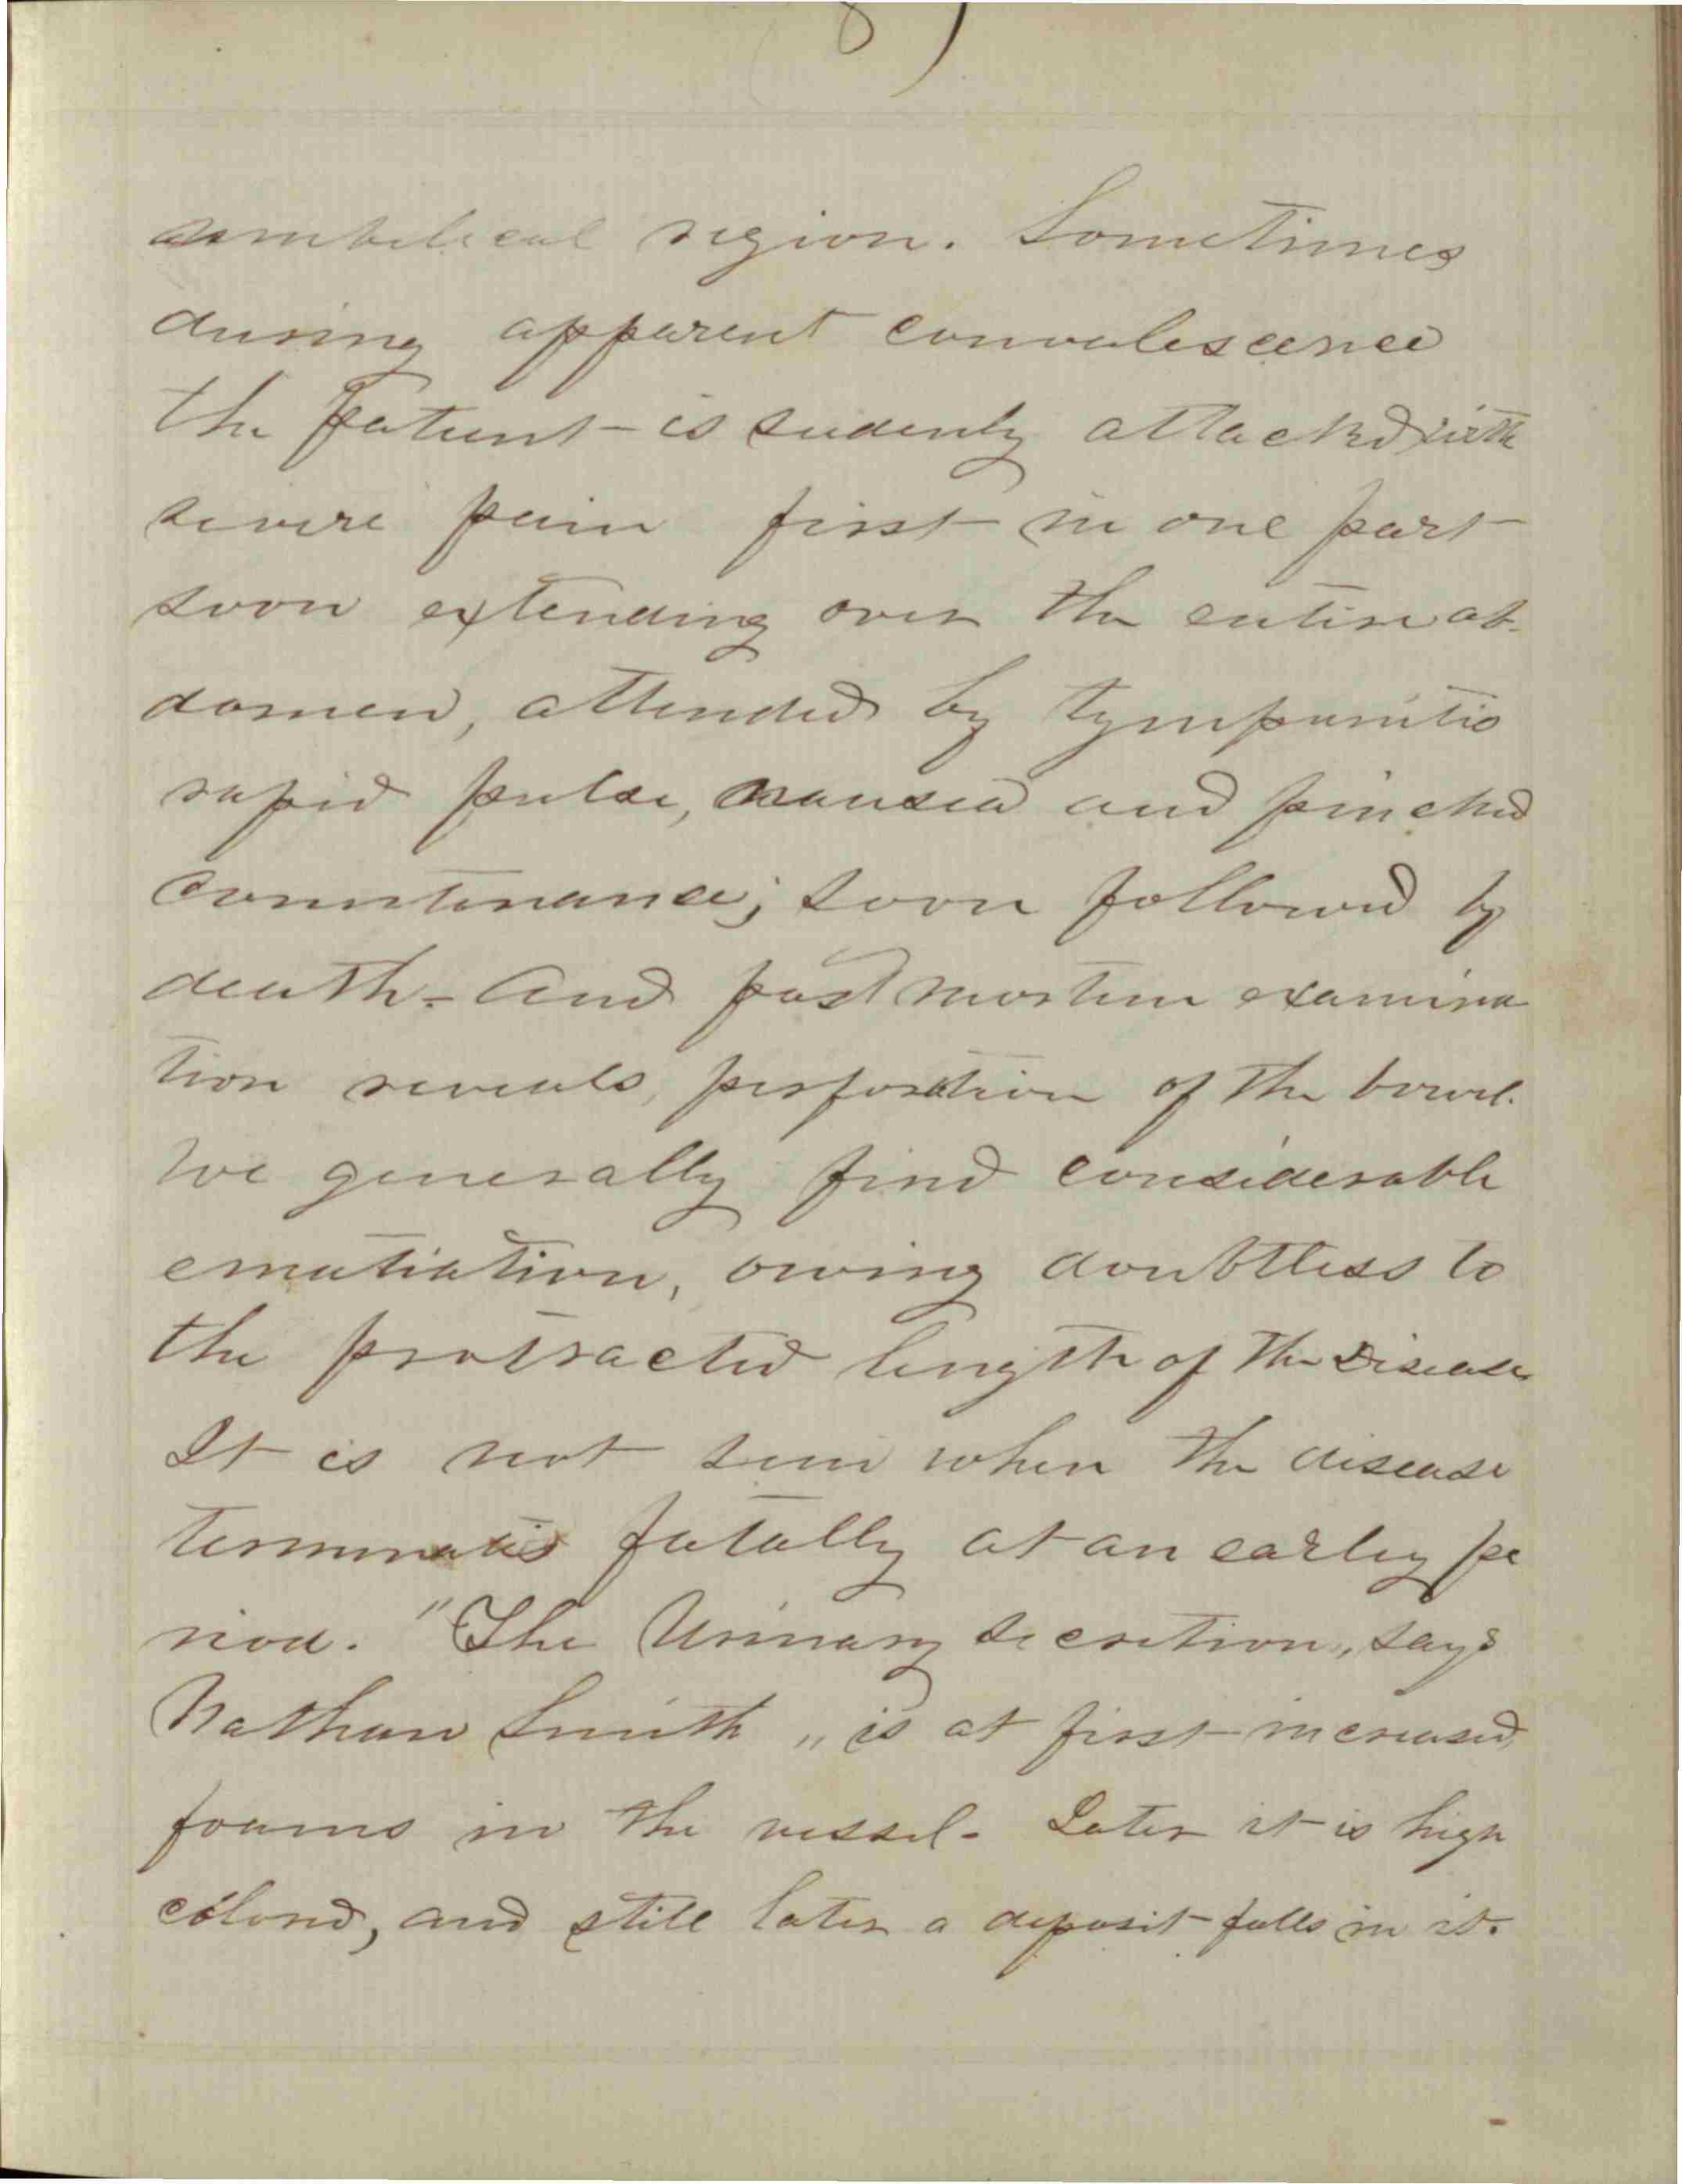 8)
umbelical region. Sometimes
during apparent convalescence
the patient is sudenly attackd with
severe pain first in one part
soon extending over the entire ab-
domen, attended by tympanitis
rapid pulse, nausea and pinched
countenance; soon followed by
death - and post mortem examina
tion reveals, perforation of the bowel.
We generally find considerable
ematiation, owing doubtless to
the protracted length of the disease.
It is not seen when the disease
terminates fatally at an earley pe
riod. "The Urinary secretion, says
Nathan Smith „ is at first increased,
foams in the vessel - Later it is high
colord, and still later a deposit falls in it.